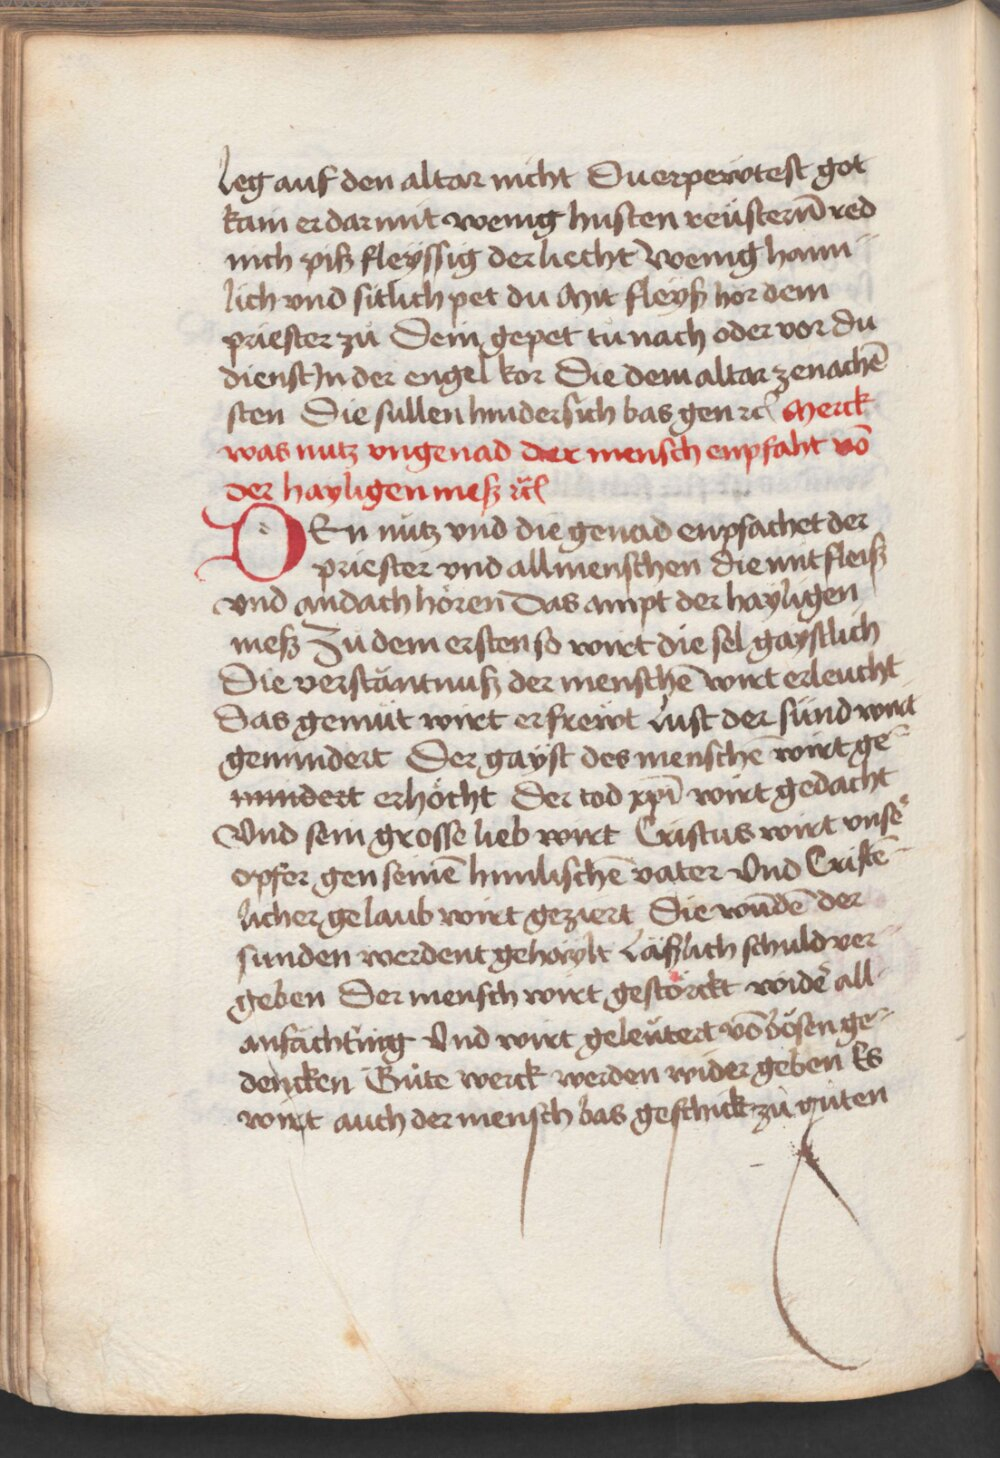 Leg auf den altar nicht Du erpewtest got
kain er darmit wenig husten reüstern̄ red
nich piß fleyssig der liecht wenig haim
lich vnd sitlich pet du Mit fleyß hör dem
priester zů Dein gepet tu nach oder vor du
dienst In der engel kor Die dem altar ze nachē
sten Die sullen hinder sich bas gen ꝛcͭ Merck
was nutz vn genad der mensch enpfaht vō
der hayligen meß ꝛcͭ
DEn nütz vnd die genad enpfachet der
priester vnd all menschen die mit fleiß
vnd andach hören Das ampt der hayligen
meß Zů dem ersten so wirt die sel gaystlich
Die verstäntnuß der menschē wirt erleucht
Das gemüt wirt erfrewt Lust der sünd wirt
gemindert Der gayst des menschē wirt ge
mindert erhöcht Der tod xp̄i wirt gedacht
Vnd sein grosse lieb wirt Cristus wirt vnsē
opfer gen seinē himlischē vater Vnd Cristē
licher gelaub wirt geziert Die wūdē der
sunden werdent gehaylt Läßlich schuld ver
geben Der mensch wirt gestörckt widē all
anfächtung Vnd wirt geleütert vō bösen ge
dencken Gůte werck werden wider geben Es
wirt auch der mensch bas geschick zů gůten